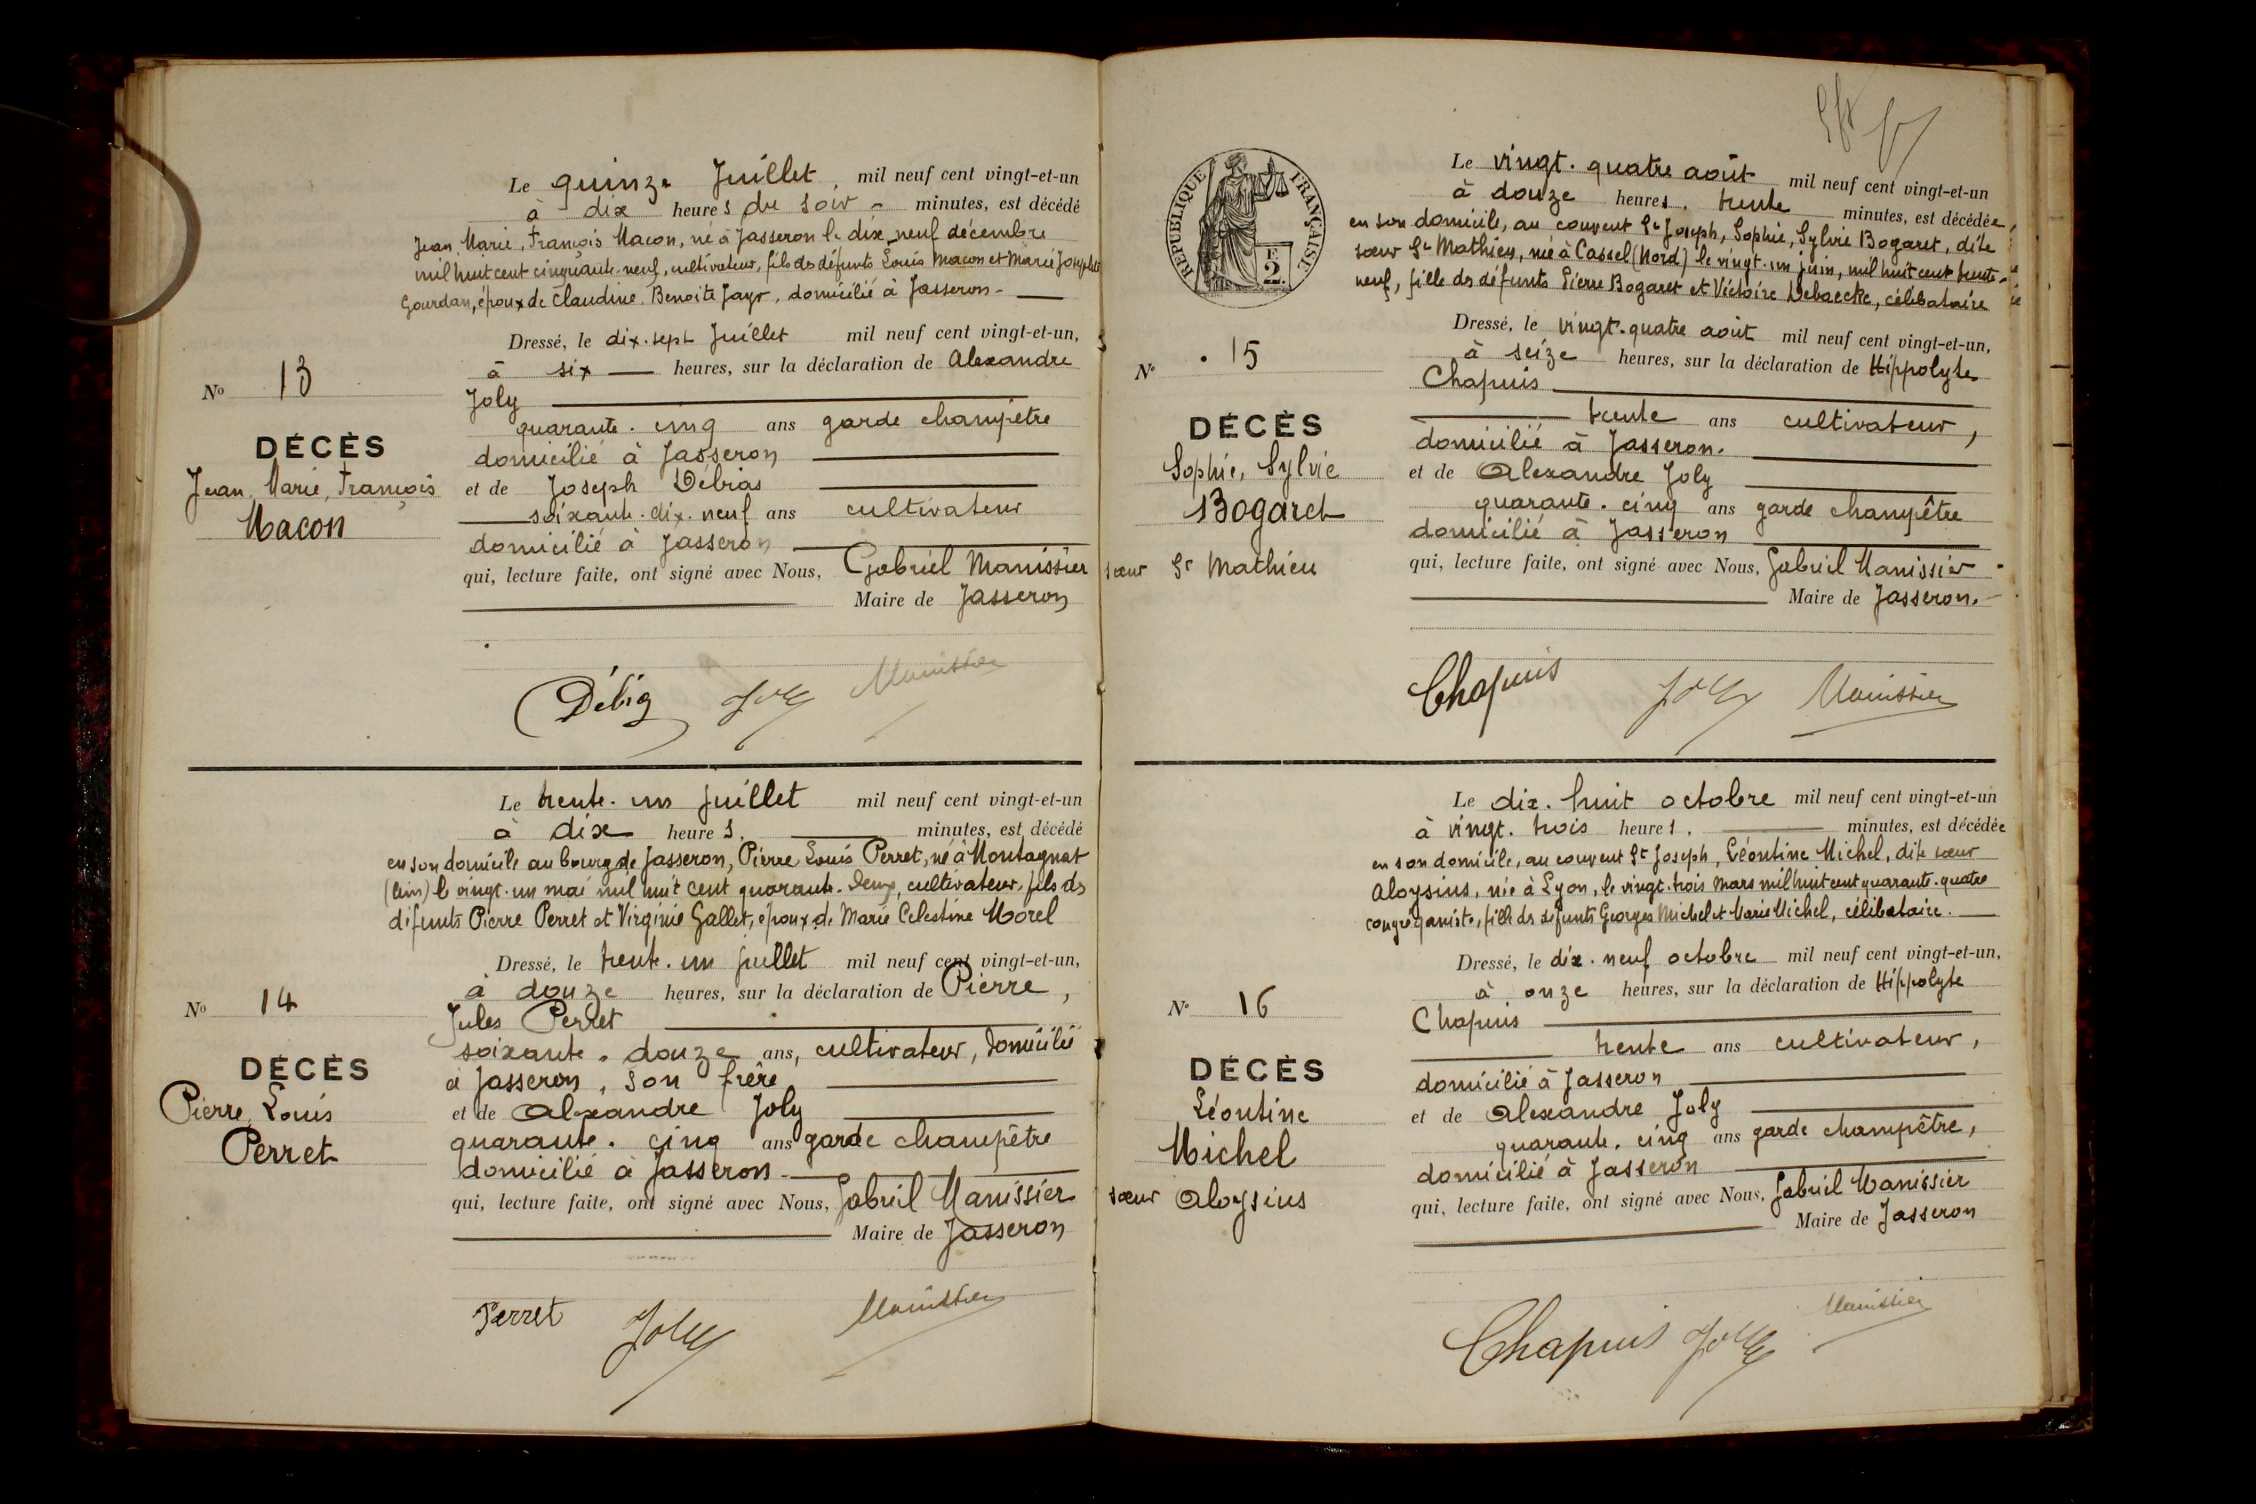 Le quinze Juillet, mil neuf cent vingt-et-un
à dix heures du soir - minutes, est décédé
Jean, Marie, François Macon, né à Jasseron le dix neuf décembre
mil huit cent cinquante-neuf, cultivateur, fils des défunts Louis Macon et Marie Josephte
Gourdan, époux de Claudine, Benoite Jayr, domicilié à Jasseron -
Dressé, le dix-sept Juillet mil neuf cent vingt-et-un,
à six heures, sur la déclaration de Alexandre
Joly
quarante-cinq ans garde champêtre
domicilié à Jasseron
et de Joseph Débias
soixante-dix-neuf ans cultivateur
domicilié à Jasseron
qui, lecture faite, ont signé avec Nous, Gabriel Manissier
Maire de Jasseron
No 13
DÉCÈS
Jean, Marie, François
Macon
Joly Manissier
Le trente-un juillet mil neuf cent vingt-et-un
à dix heures. minutes, est décédé
en son domicile au bourg de Jasseron, Pierre Louis Perret, né à Montagnat
(Ain) le vingt-un mai mil huit cent quarante-deux, cultivateur, fils des
défunts Pierre Perret et Virginie Gallet, époux de Marie Celestine Morel
Dressé, le trente-un juillet mil neuf cent vingt-et-un,
à douze heures, sur la déclaration de Pierre,
Jules Perret
soixante-douze ans, cultivateur, domicilié
à Jasseron, son frère
et de Alexandre Joly
quarante-cinq ans garde champêtre
domicilié à Jasseron
qui, lecture faite, ont signé avec Nous, Gabriel Manissier
Maire de Jasseron
No 14
DÉCÈS
Pierre, Louis
Perret
Perret Joly Manissier
RÉPUBLIQUE FRANÇAISE
2 F.
Le vingt-quatre août mil neuf cent vingt-et-un
à douze heures. trente minutes, est décédée,
en son domicile, au couvent St Joseph, Sophie, Sylvie Bogaret, dite
sœur St Mathieu, née à Cassel (Nord) le vingt-un juin, mil huit cent trente-
neuf, fille des défunts Pierre Bogaret et Victoire Debaecke, célibataire
Dressé, le vingt-quatre août mil neuf cent vingt-et-un,
à seize heures, sur la déclaration de Hippolyte
Chapuis
trente ans cultivateur,
domicilié à Jasseron.
et de Alexandre Joly
quarante-cinq ans garde champêtre
domicilié à Jasseron
qui, lecture faite, ont signé avec Nous, Gabriel Manissier
Maire de Jasseron.
No 15
DÉCÈS
Sophie, Sylvie
Bogaret
sœur St Mathieu
Chapuis Joly Manissier
Le dix-huit octobre mil neuf cent vingt-et-un
à vingt-trois heures. minutes, est décédée
en son domicile, au couvent St Joseph, Léontine Michel, dite sœur
Aloysius, née à Lyon, le vingt-trois mars mil huit cent quarante-quatre
congréganiste, fille des défunts Georges Michel et Marie Michel, célibataire.
Dressé, le dix-neuf octobre mil neuf cent vingt-et-un,
à onze heures, sur la déclaration de Hippolyte
Chapuis
trente ans cultivateur,
domicilié à Jasseron
et de Alexandre Joly
quarante-cinq ans garde champêtre,
domicilié à Jasseron
qui, lecture faite, ont signé avec Nous, Gabriel Manissier
Maire de Jasseron
No 16
DÉCÈS
Léontine
Michel
sœur Aloysius
Chapuis Joly Manissier